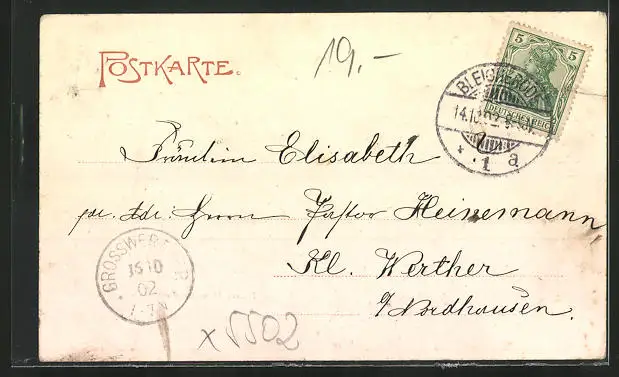 POSTKARTE.
19.-
5
DEUTSCHES REICH
BLEICHERODE
14.10.02
1 a
Fräulein Elisabeth
pr. Adr. Herrn Pastor Heinemann
Kl. Werther
b/Nordhausen.
GROSSWERTHER
15 10
02
7-8N
x 5502